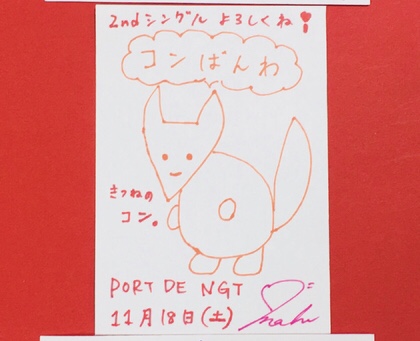 2ndシングル よろしくね!
コンばんわ
きつねの
コン。
PORT DE NGT
11月18日(土)